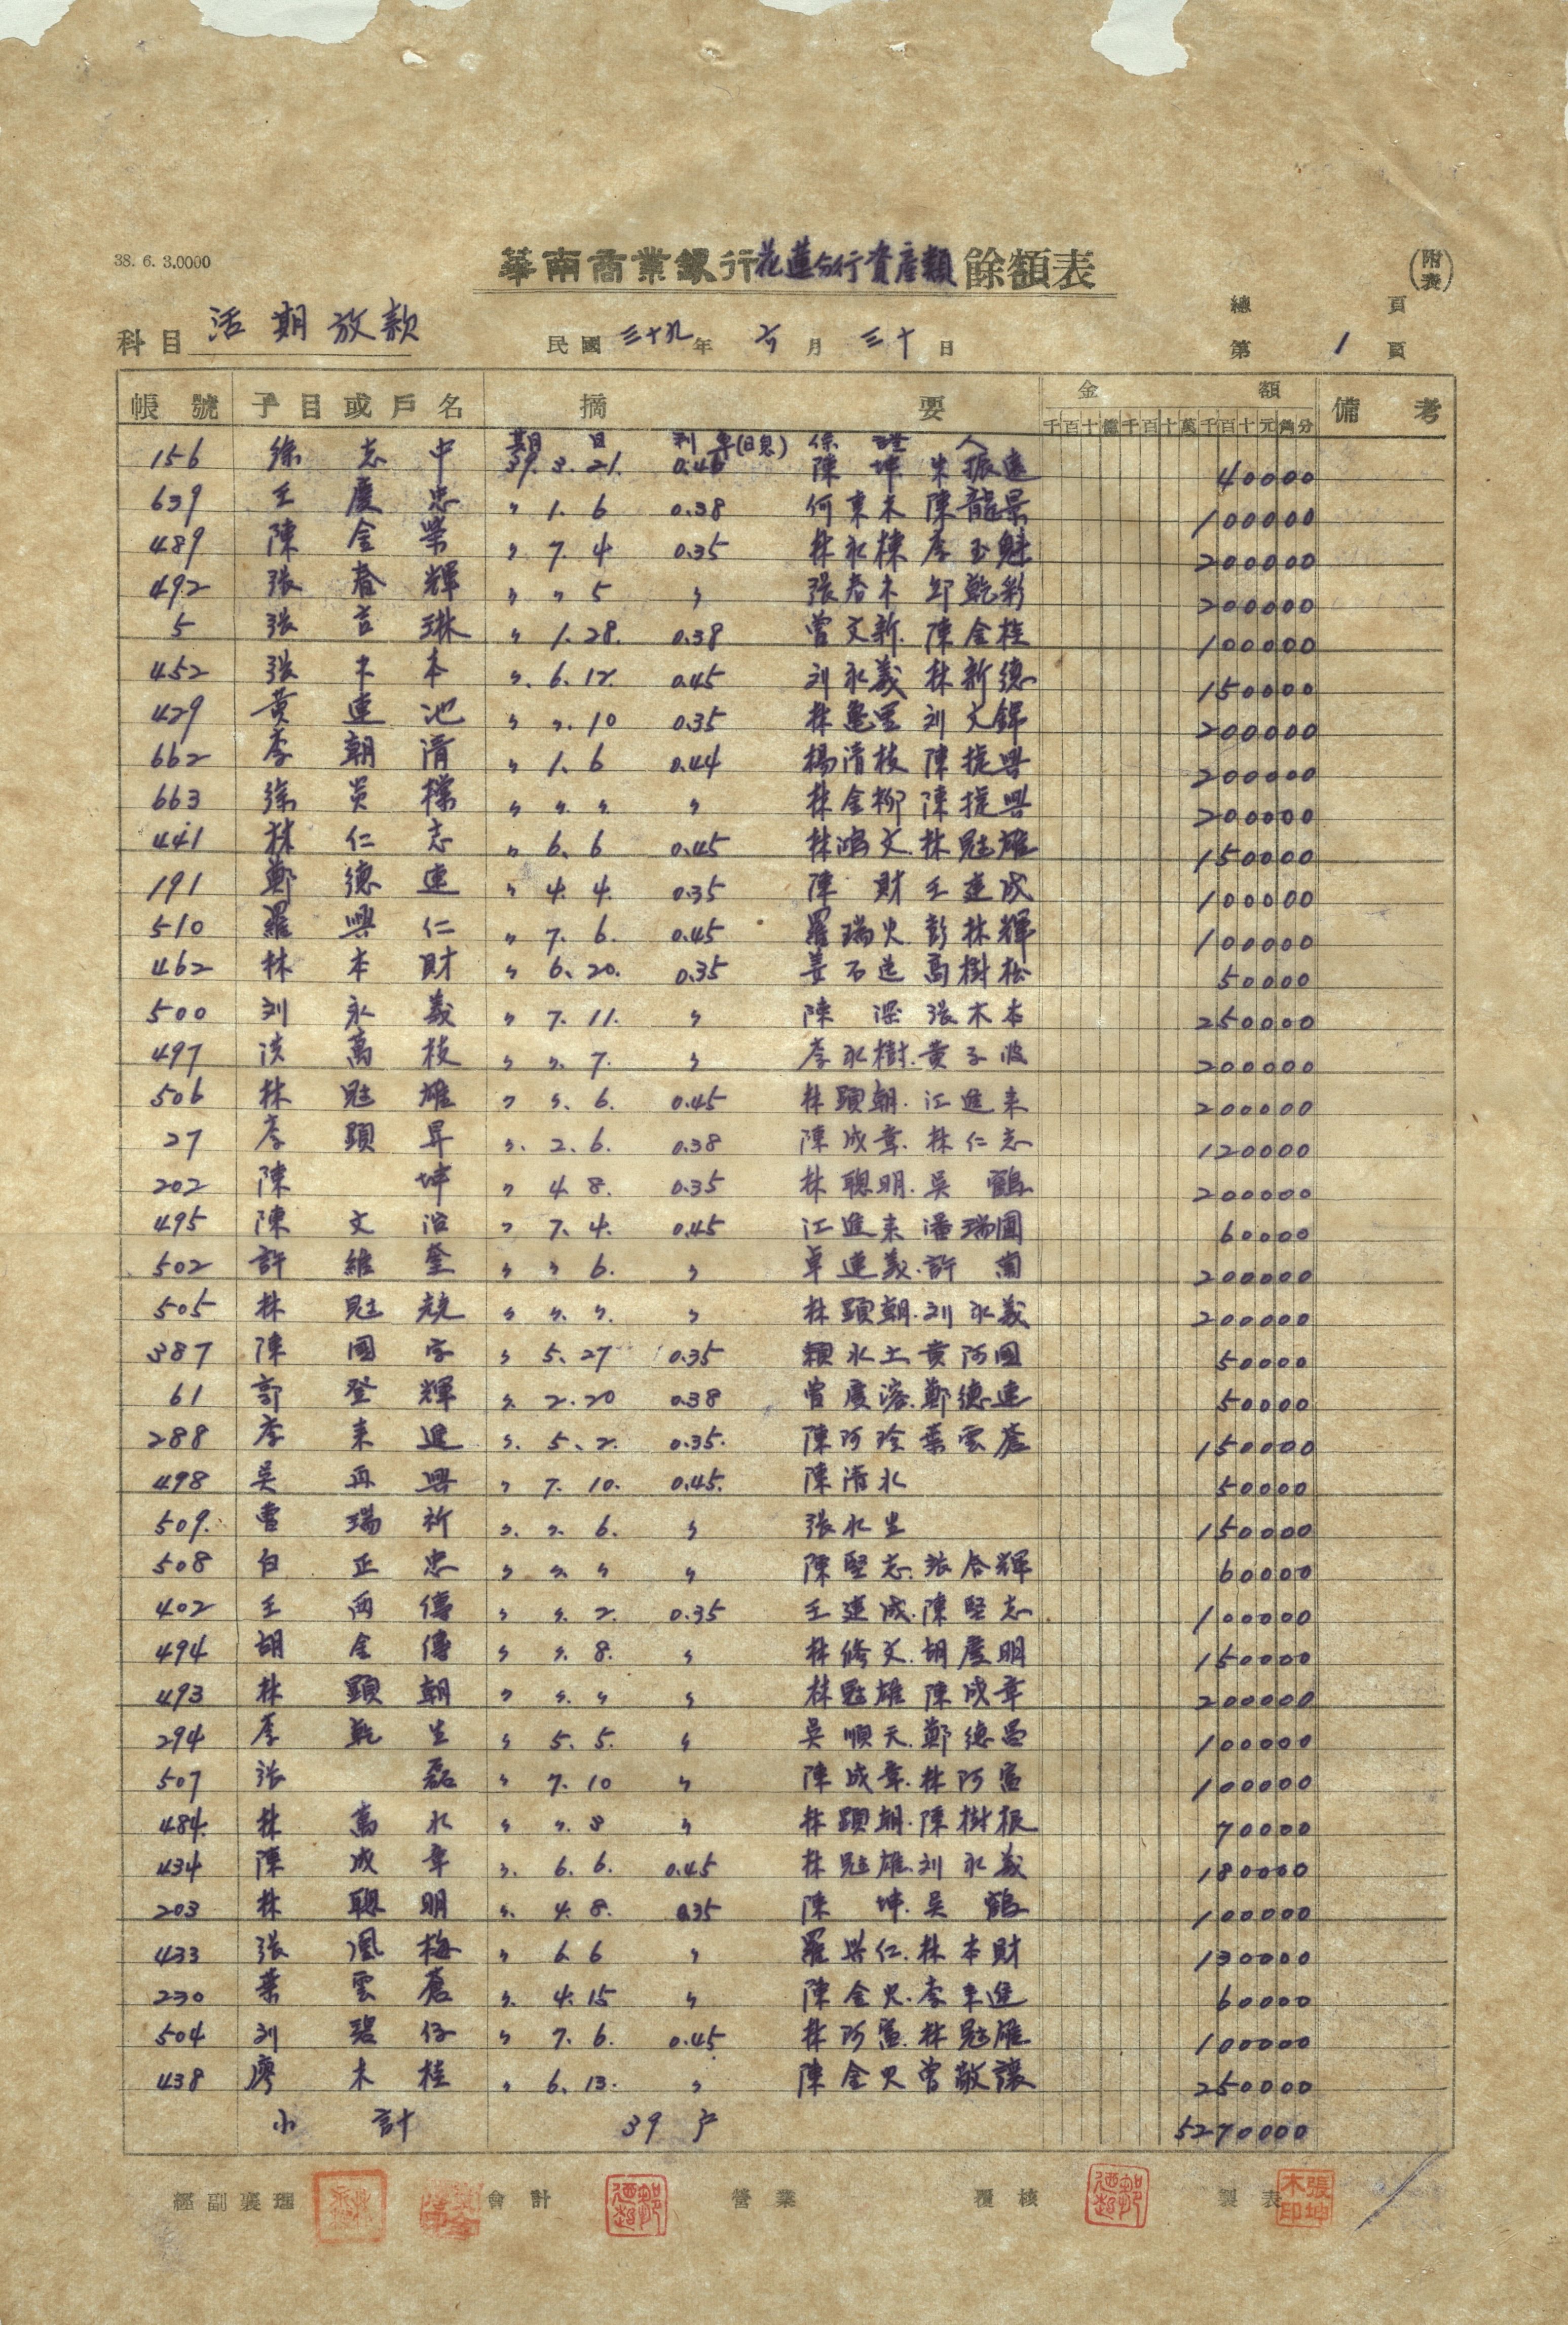 38. 6. 3.0000
華南商業銀行花蓮分行資產類餘額表
(附表)
總 頁
科目 活期放款 民國 三十九 年 六 月 三十 日 第 1 頁
帳號 子目或戶名 摘要 金額 備考
千百十億千百十萬千百十元角分
期日 利率(日息) 保證人
156 徐志中 39. 3. 21. 0.46 陳坤 朱振遠 40000
639 王慶忠 〃 1. 6 0.38 何東木 陳龍景 100000
489 陳金榮 〃 7. 4 0.35 林永棟 李玉魁 200000
492 張春輝 〃 〃 5 〃 張春木 邱乾彩 200000
5 張吉琳 〃 1. 28. 0.38 曾文新. 陳金桂 100000
452 張木本 〃. 6. 12. 0.45 刘永義 林新德 150000
429 黃連池 〃 〃. 10 0.35 林 刘文 200000
662 李朝清 〃 1. 6 0.44 楊清枝 陳捷興 200000
663 徐吳樑 〃 〃. 〃. 〃 林金柳 陳捷興 200000
441 林仁志 〃 6. 6 0.45 林鴻文. 林魁雄 150000
191 鄭德連 〃 4. 4. 0.35 陳財 王連成 100000
510 羅興仁 〃 7. 6. 0.45 羅瑞火. 彭林輝 100000
462 林本財 〃 6. 20. 0.35 姜石送 高樹松 50000
500 刘永義 〃 7. 11. 〃 陳深 張木本 250000
497 洪萬枝 〃 〃. 7. 〃 李永樹. 黃子波 200000
506 林魁雄 〃 〃. 6. 0.45 林顕朝. 江進来 200000
27 李顕昇 〃. 2. 6. 0.38 陳成章. 林仁志 120000
202 陳坤 〃 4. 8. 0.35 林聰明. 吳鶴 200000
495 陳文 〃 7. 4. 0.45 江進来 潘瑞國 60000
502 許維奎 〃 〃 6. 〃 卓連義. 許蘭 200000
505 林魁競 〃 〃. 〃. 〃 林顕朝. 刘永義 200000
387 陳國字 〃 5. 27 0.35 賴水土 黃阿國 50000
61 郭登輝 〃. 2. 20 0.38 曾慶. 鄭德連 50000
288 李来進 〃. 5. 2. 0.35. 陳阿 葉雲蒼 150000
498 吳再興 〃 7. 10. 0.45. 陳清水 50000
509. 曹瑞祈 〃. 〃. 6. 〃 張水生 150000
508 白正忠 〃 〃. 〃 〃 陳堅志. 張春輝 60000
402 王両傳 〃 〃. 2. 0.35 王連成. 陳堅志 100000
494 胡金傳 〃 〃. 8. 〃 林修文. 胡慶明 150000
493 林顕朝 〃 〃. 〃 〃 林魁雄 陳成章 200000
294 李乾生 〃 5. 5. 〃 吳順天. 鄭德昌 100000
507 張磊 〃 7. 10 〃 陳成章. 林阿富 100000
484. 林萬水 〃 〃. 8 〃 林顕朝. 陳樹根 70000
434 陳成章 〃. 6. 6. 0.45 林魁雄. 刘永義 180000
203 林聰明 〃. 4. 8. 0.35 陳坤. 吳鶴 100000
433 張鳳梅 〃 6. 6 〃 羅興仁. 林本財 130000
230 葉雲蒼 〃. 4. 15 〃 陳金火. 李来進 60000
504 刘碧仔 〃 7. 6. 0.45 林阿富. 林魁雄 100000
438 廖木桂 〃 6. 13. 〃 陳金火 曾敬讓 250000
小計 39戶 5270000
經副襄理 會計 營業 覆核 製表
張坤木印